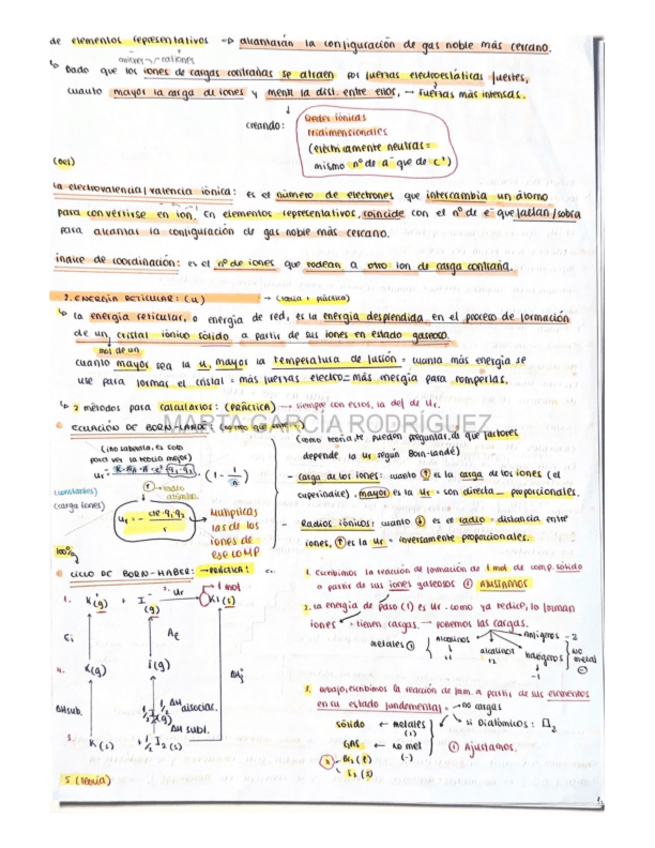 de elementos representativos → alcanzarán la configuración de gas noble más cercano.
aniones cationes
↳ Dado que los iones de cargas contrarias se atraen por fuerzas electroestáticas fuertes,
cuanto mayor la carga de iones y menor la dist. entre ellos, → fuerzas más intensas.
creando:
Redes iónicas
tridimensionales
(eléctricamente neutras =
mismo nº de a⁻ que de c⁺)
La electrovalencia/valencia iónica: es el número de electrones que intercambia un átomo
para convertirse en ion. En elementos representativos, coincide con el nº de e⁻ que faltan/sobra
para alcanzar la configuración de gas noble más cercano.
índice de coordinación: es el nº de iones que rodean a otro ion de carga contraria.
2. ENERGÍA RETICULAR: (U) → (teoría + práctica)
↳ La energía reticular, o energía de red, es la energía desprendida en el proceso de formación
de un cristal iónico sólido a partir de sus iones en estado gaseoso.
mol de un
cuanto mayor sea la U, mayor la temperatura de fusión = cuanta más energía se
use para formar el cristal = más fuerzas electro = más energía para romperlas.
↳ 2 métodos para calcularlos: (PRÁCTICA) → siempre con estos, la def de Ur.
MARTA GARCÍA RODRÍGUEZ
ECUACIÓN DE BORN-LANDÉ:
(como teoría te pueden preguntar, de que factores
depende la Ur según Born-Landé)
para ver la teoría mejor)
(1 - 1/n)
(constantes)
(carga iones)
Ur = - cte·q₁·q₂ / r
Multiplicas
las de los
iones de
ese COMP
- Carga de los iones: cuanto ↑ es la carga de los iones (el
superíndice), mayor es la Ur = son directa_ proporcionales.
- Radios iónicos: cuanto ↓ es el radio = distancia entre
iones, ↑ es la Ur = inversamente proporcionales.
100%
CICLO DE BORN-HABER: → PRÁCTICA:
1. K⁺(g) + I⁻(g) Ur → 1 mol KI(s)
Ei
Ae
K(g) I(g)
ΔHsub.
1/2 ΔH disocias.
1/2 I₂(g)
1/2 ΔH subl.
ΔHf
3. K(s) + 1/2 I₂(s)
1. Escribimos la reacción de formación de 1 mol de comp. sólido
a partir de sus iones gaseosos AJUSTAMOS
2. La energía de paso (1) es Ur. como ya redicé, lo forman
iones = tienen cargas → ponemos las cargas.
metales ⊕
alcalinos +1
alcalinot +2
halógenos -1
anfígenos -2
NO metal ⊖
3. abajo, escribimos la reacción de form. a partir de sus elementos
en su estado fundamental = → no cargas
sólido ← metales (+)
GAS ← no met (-)
si Diatómicos: □₂
Ajustamos.
Br₂(l)
I₂(s)
5 (teoría)